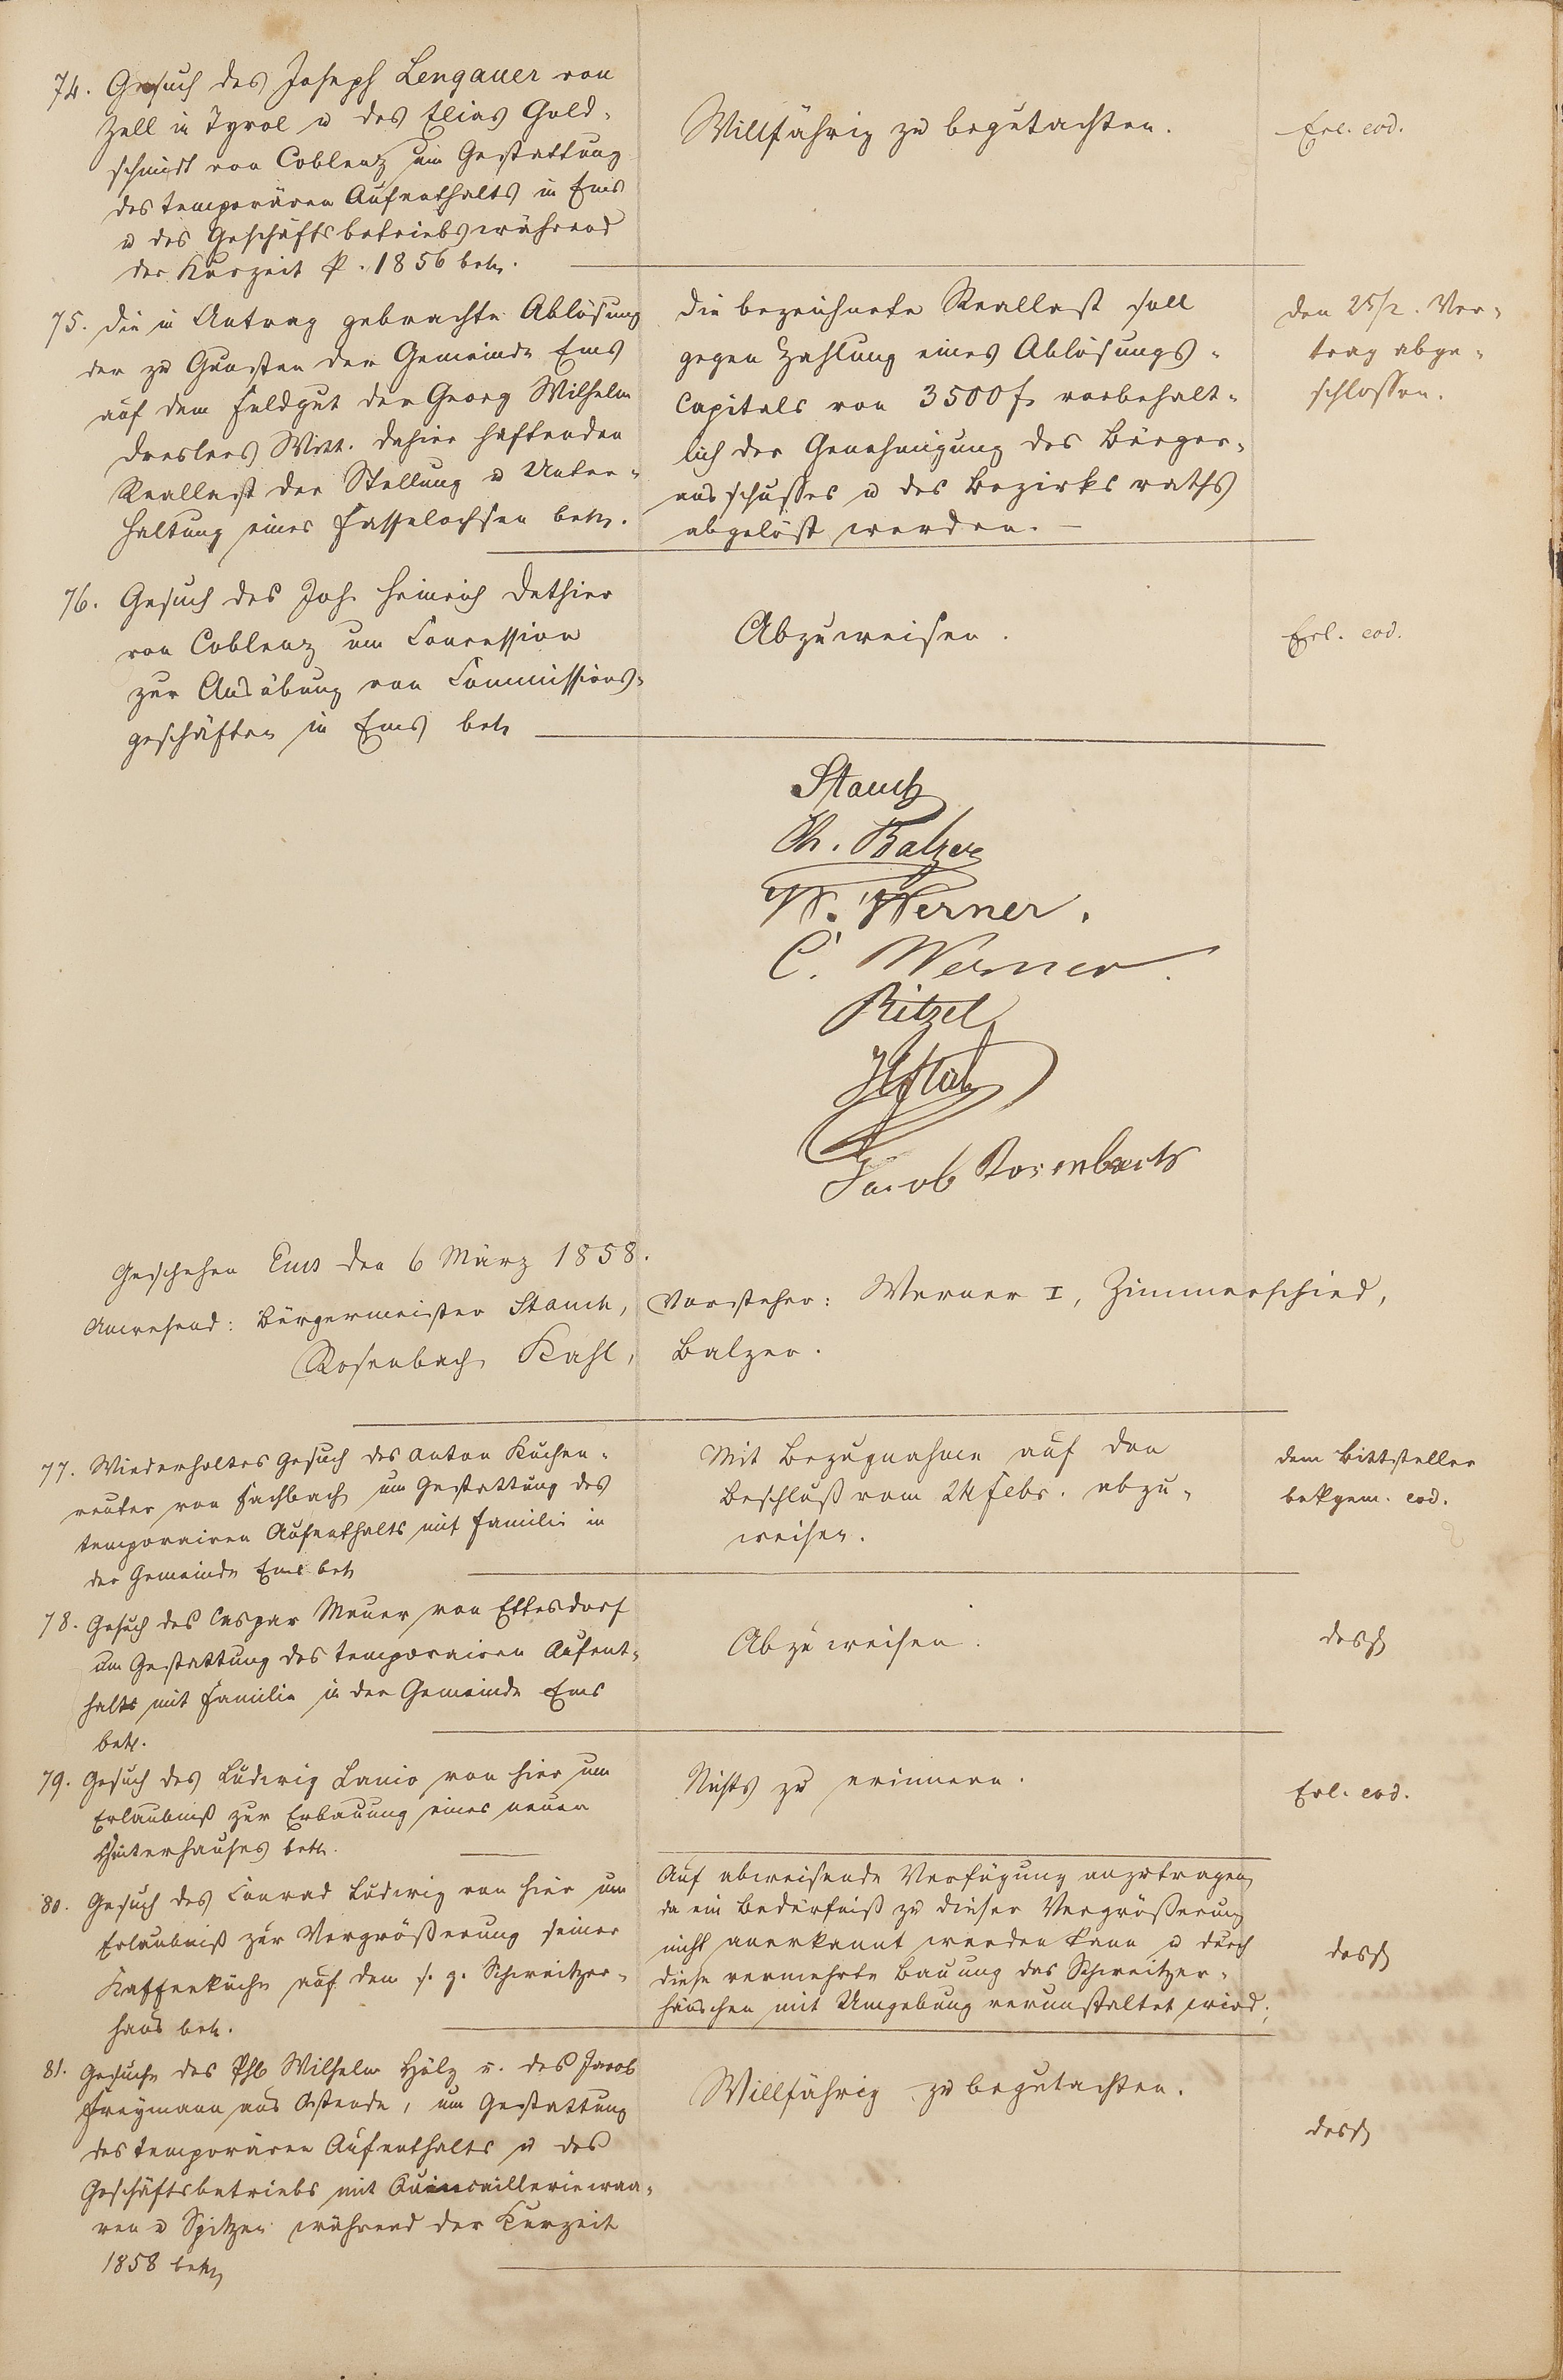 74. Gesuch des Joseph Lengauer von
Zell in Tyrol u des Elias Gold-
schmidt von Coblenz um Gestattung
des temporären Aufenthalts in Ems
u des Geschäftsbetriebs während
der Kurzeit p. 1856 betr.
Willfährig zu begutachten.
Erl. eod.
75. Die in Antrag gebrachte Ablösung
der zu Gunsten der Gemeinde Ems
auf dem Feldgut der Georg Wilhelm
Dreslers Witt. dahier haftenden
Reallast der Stellung u Unter-
haltung eines Fasselochsen betr.
Die bezeichnete Reallast soll
gegen Zahlung eines Ablösungs-
Capitals von 3500 f. vorbehalt-
lich der Genehmigung des Bürger-
ausschusses u des Bezirksraths
abgelöst werden. —
Den 25/2. Ver-
trag abge-
schlossen.
76. Gesuch des Joh. Heinrich Dethier
von Coblenz um Concession
zur Ausübung von Commissions-
geschäften in Ems betr
Abzuweisen.
Erl. eod.
Stauch
Ph. Balzer
W. Werner.
C. Werner.
Ritzel
Jacob Rosenbach
Geschehen Ems den 6 März 1858.
Anwesend: Bürgermeister Stauch, Vorsteher: Werner I, Zimmerschied,
Rosenbach, Kahl, Balzer.
77. Wiederholtes Gesuch des Anton Kuchen-
reuter von Fachbach um Gestattung des
temporairen Aufenthalts mit Familie in
der Gemeinde Ems betr
Mit Bezugnahme auf den
Beschluß vom 24 Febr. abzu-
weisen.
Dem Bittsteller
bekgem. eod.
78. Gesuch des Caspar Meuer von Ettersdorf
um Gestattung des temporairen Aufent-
halts mit Familie in der Gemeinde Ems
betr.
Abzuweisen.
desgl
79. Gesuch des Ludwig Lanio von hier um
Erlaubniß zur Erbauung eines neuen
Hinterhauses betr.
Nichts zu erinnern.
Erl. eod.
80. Gesuch des Conrad Ludwig von hier um
Erlaubniß zur Vergrößerung seiner
Kaffeeküche auf dem s. g. Schweitzer-
haus betr.
Auf abweisende Verfügung anzutragen,
da ein Bedürfniß zu dieser Vergrößerung
nicht anerkannt werden kann u durch
diese vermehrte Bauung das Schweitzer-
häuschen mit Umgebung verunstaltet wird.
desgl
81. Gesuche des Phil Wilhelm Hölz u. des Jacob
Freymann aus Ostende, um Gestattung
des temporären Aufenthalts u des
Geschäftsbetriebs mit Quincailleriewaa-
ren u Spitzen während der Kurzeit
1858 betr
Willfährig zu begutachten.
desgl